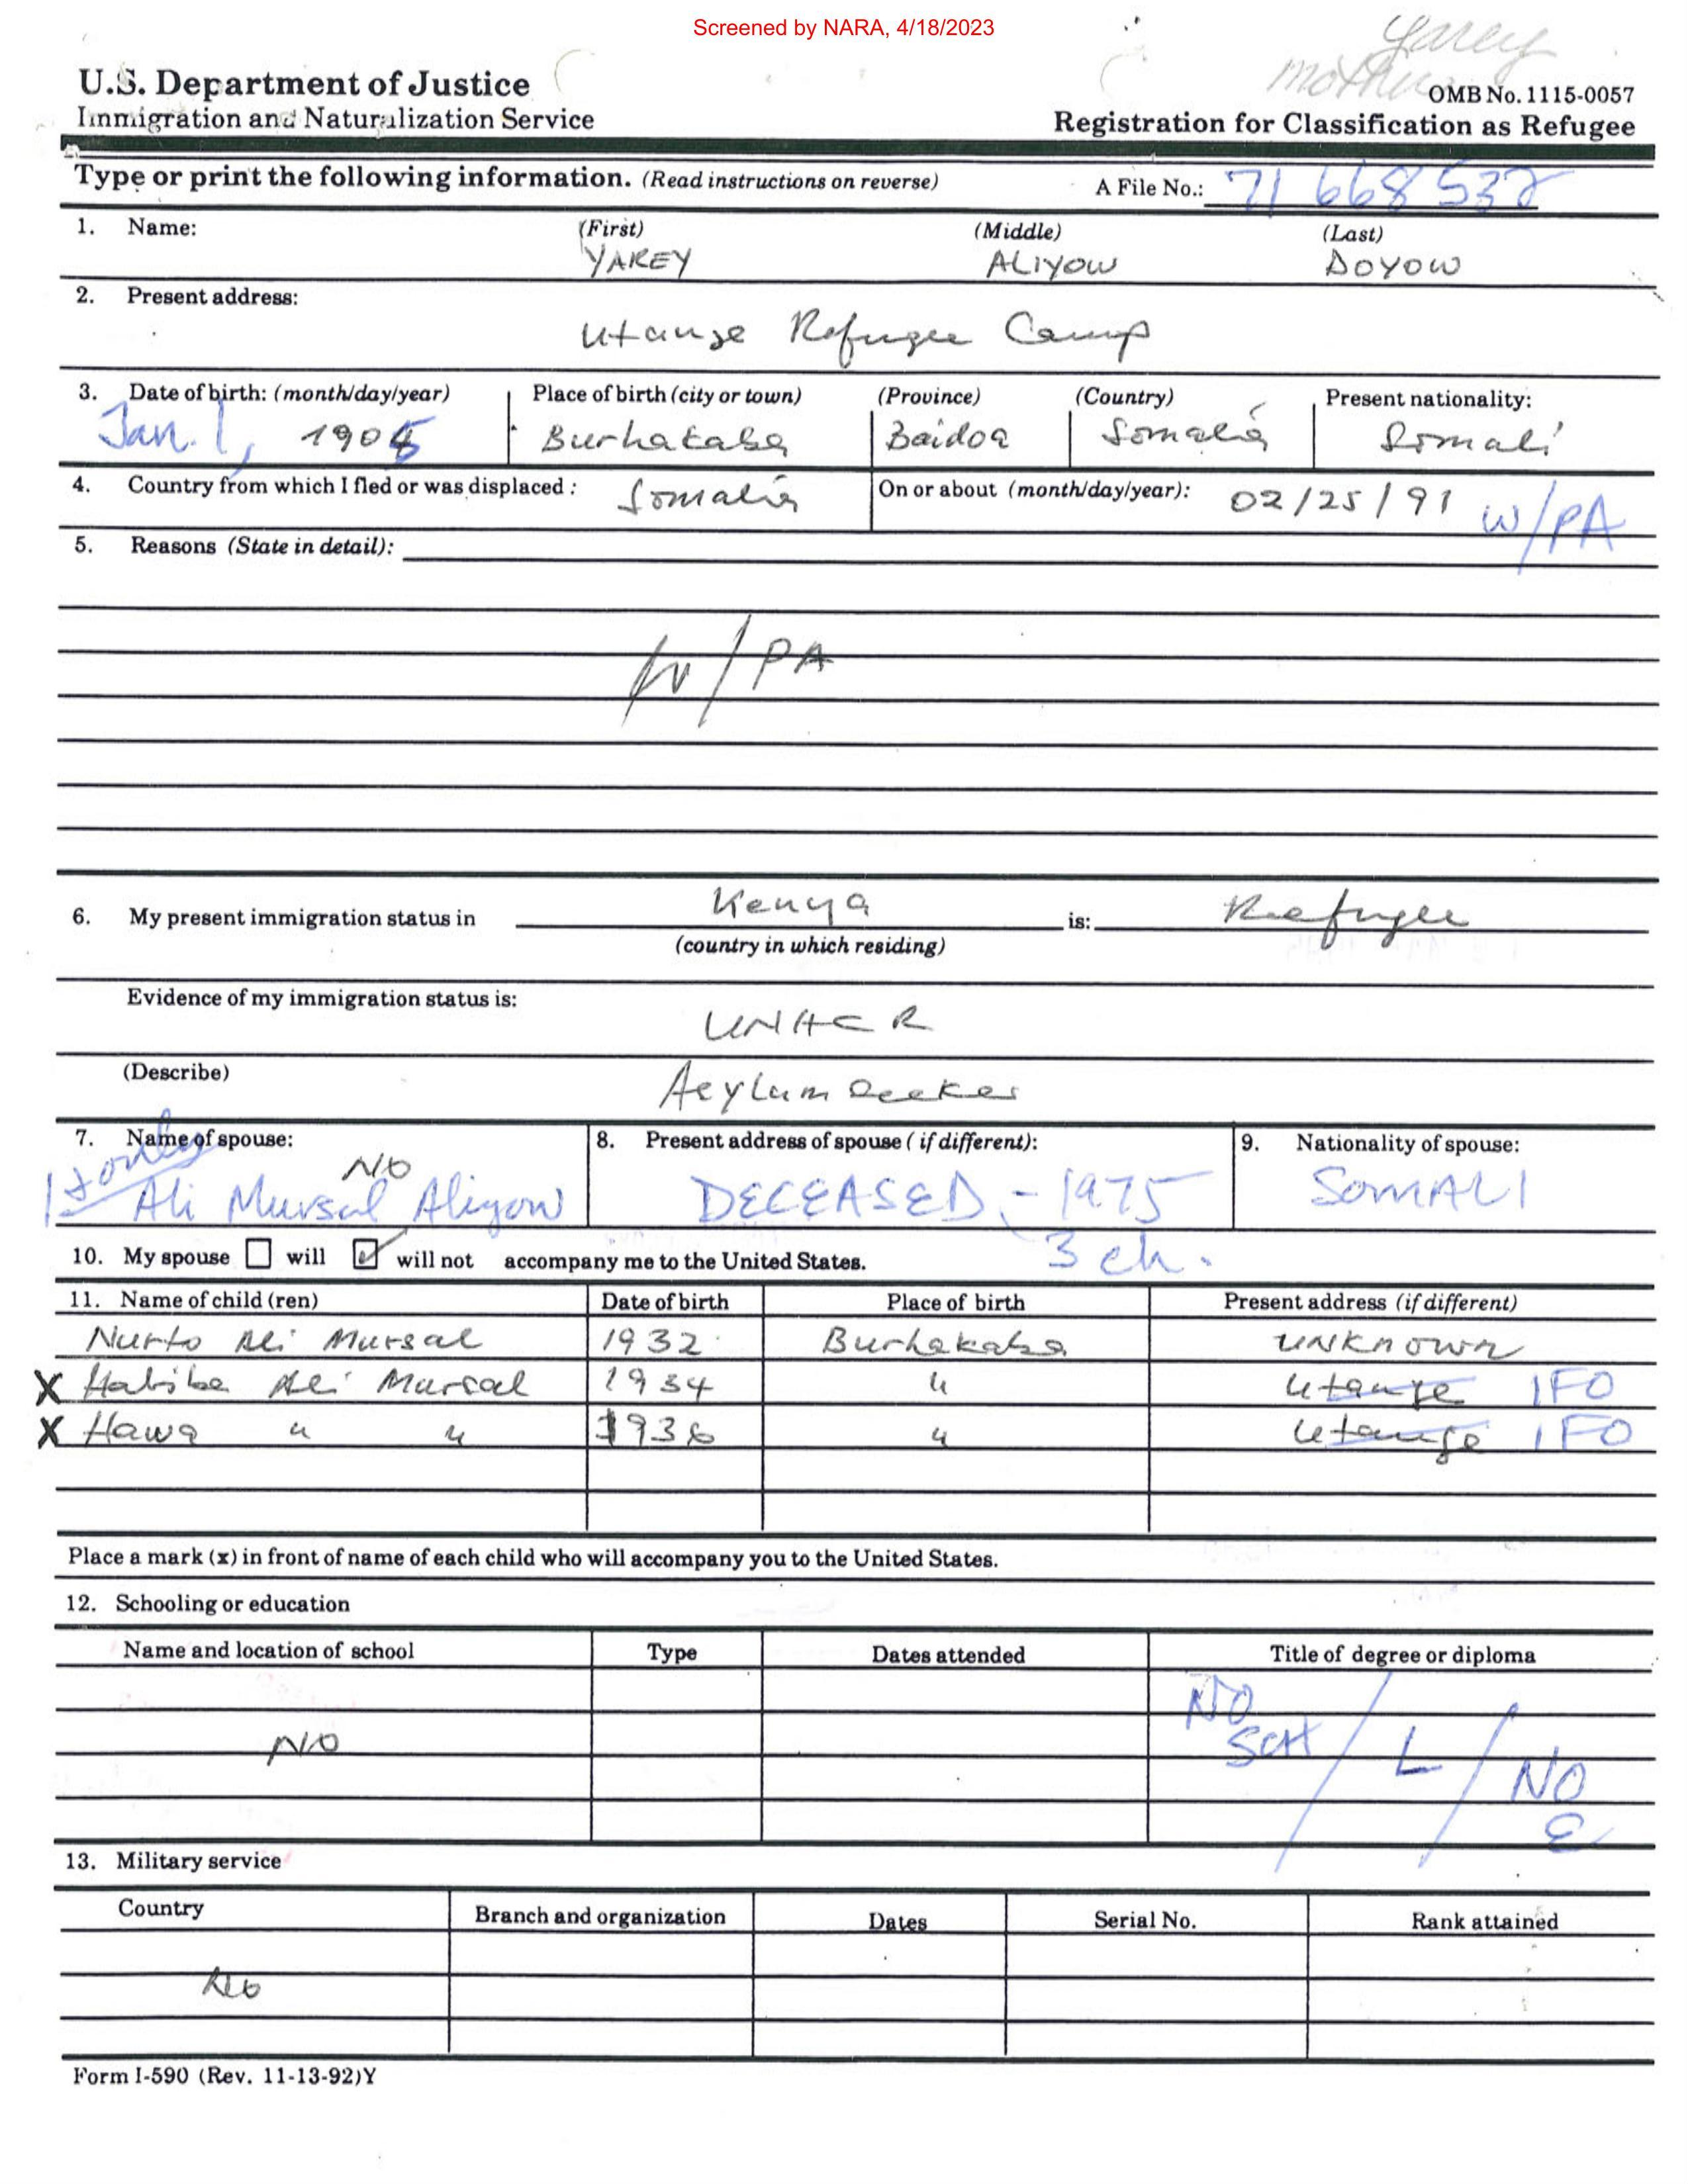 Screened by NARA, 4/18/2023
Yarey
mother
U.S. Department of Justice
Immigration and Naturalization Service
OMB No. 1115-0057
Registration for Classification as Refugee
Type or print the following information. (Read instructions on reverse)
A File No.: 71 668 532
1. Name: (First) (Middle) (Last)
YAREY ALIYOW DOYOW
2. Present address:
Utange Refugee Camp
3. Date of birth: (month/day/year) Place of birth (city or town) (Province) (Country) Present nationality:
Jan. 1, 1905 Burhakaba Baidoa Somalia Somali
4. Country from which I fled or was displaced: Somalia On or about (month/day/year): 02/25/91 W/PA
5. Reasons (State in detail):
W/PA
6. My present immigration status in Kenya is: Refugee
(country in which residing)
Evidence of my immigration status is:
UNHCR
(Describe)
Asylum seeker
7. Name of spouse: 8. Present address of spouse (if different): 9. Nationality of spouse:
NO
1st only Ali Mursal Aliyow DECEASED - 1975 SOMALI
10. My spouse will will not accompany me to the United States. 3 ch.
11. Name of child (ren) Date of birth Place of birth Present address (if different)
Nurto Ali Mursal 1932 Burhakaba UNKNOWN
X Habiba Ali Mursal 1934 " Utange IFO
X Hawa " " 1936 " Utange IFO
Place a mark (x) in front of name of each child who will accompany you to the United States.
12. Schooling or education
Name and location of school Type Dates attended Title of degree or diploma
NO
NO SCH / L / NO E
13. Military service
Country Branch and organization Dates Serial No. Rank attained
No
Form I-590 (Rev. 11-13-92)Y